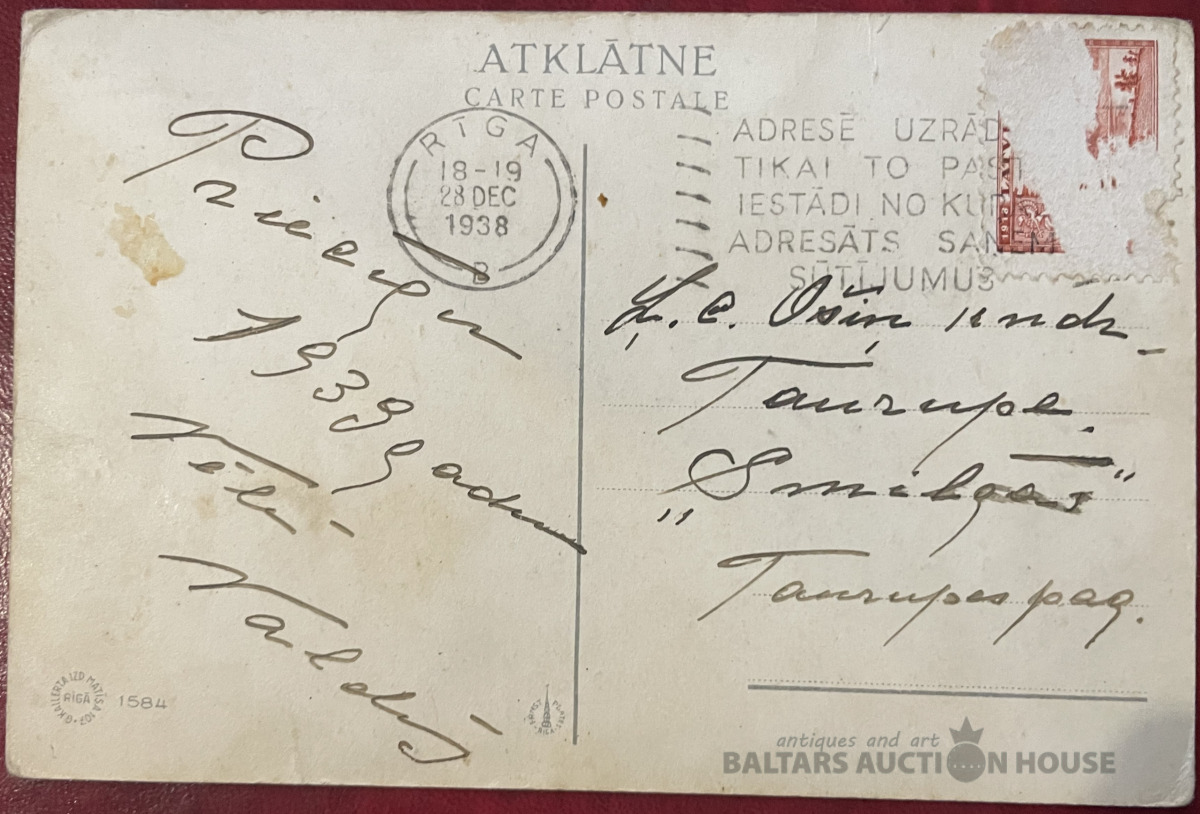 ATKLĀTNE
CARTE POSTALE
RĪGA
18-19
28 DEC
1938
B
ADRESĒ UZRĀD
TIKAI TO PAST
IESTĀDI NO KUR
ADRESĀTS SAŅEM
SŪTĪJUMUS
LATV
1918
Priecīgu
1939 gadu
Vēl
Valdis
Ļ. c. Ošiņ kndz
Taurupe
„Smilgas"
Taurupes pag.
G.KALLERTA IZD. MATISA 107
RĪGĀ
1584
antiques and art
BALTARS AUCTION HOUSE